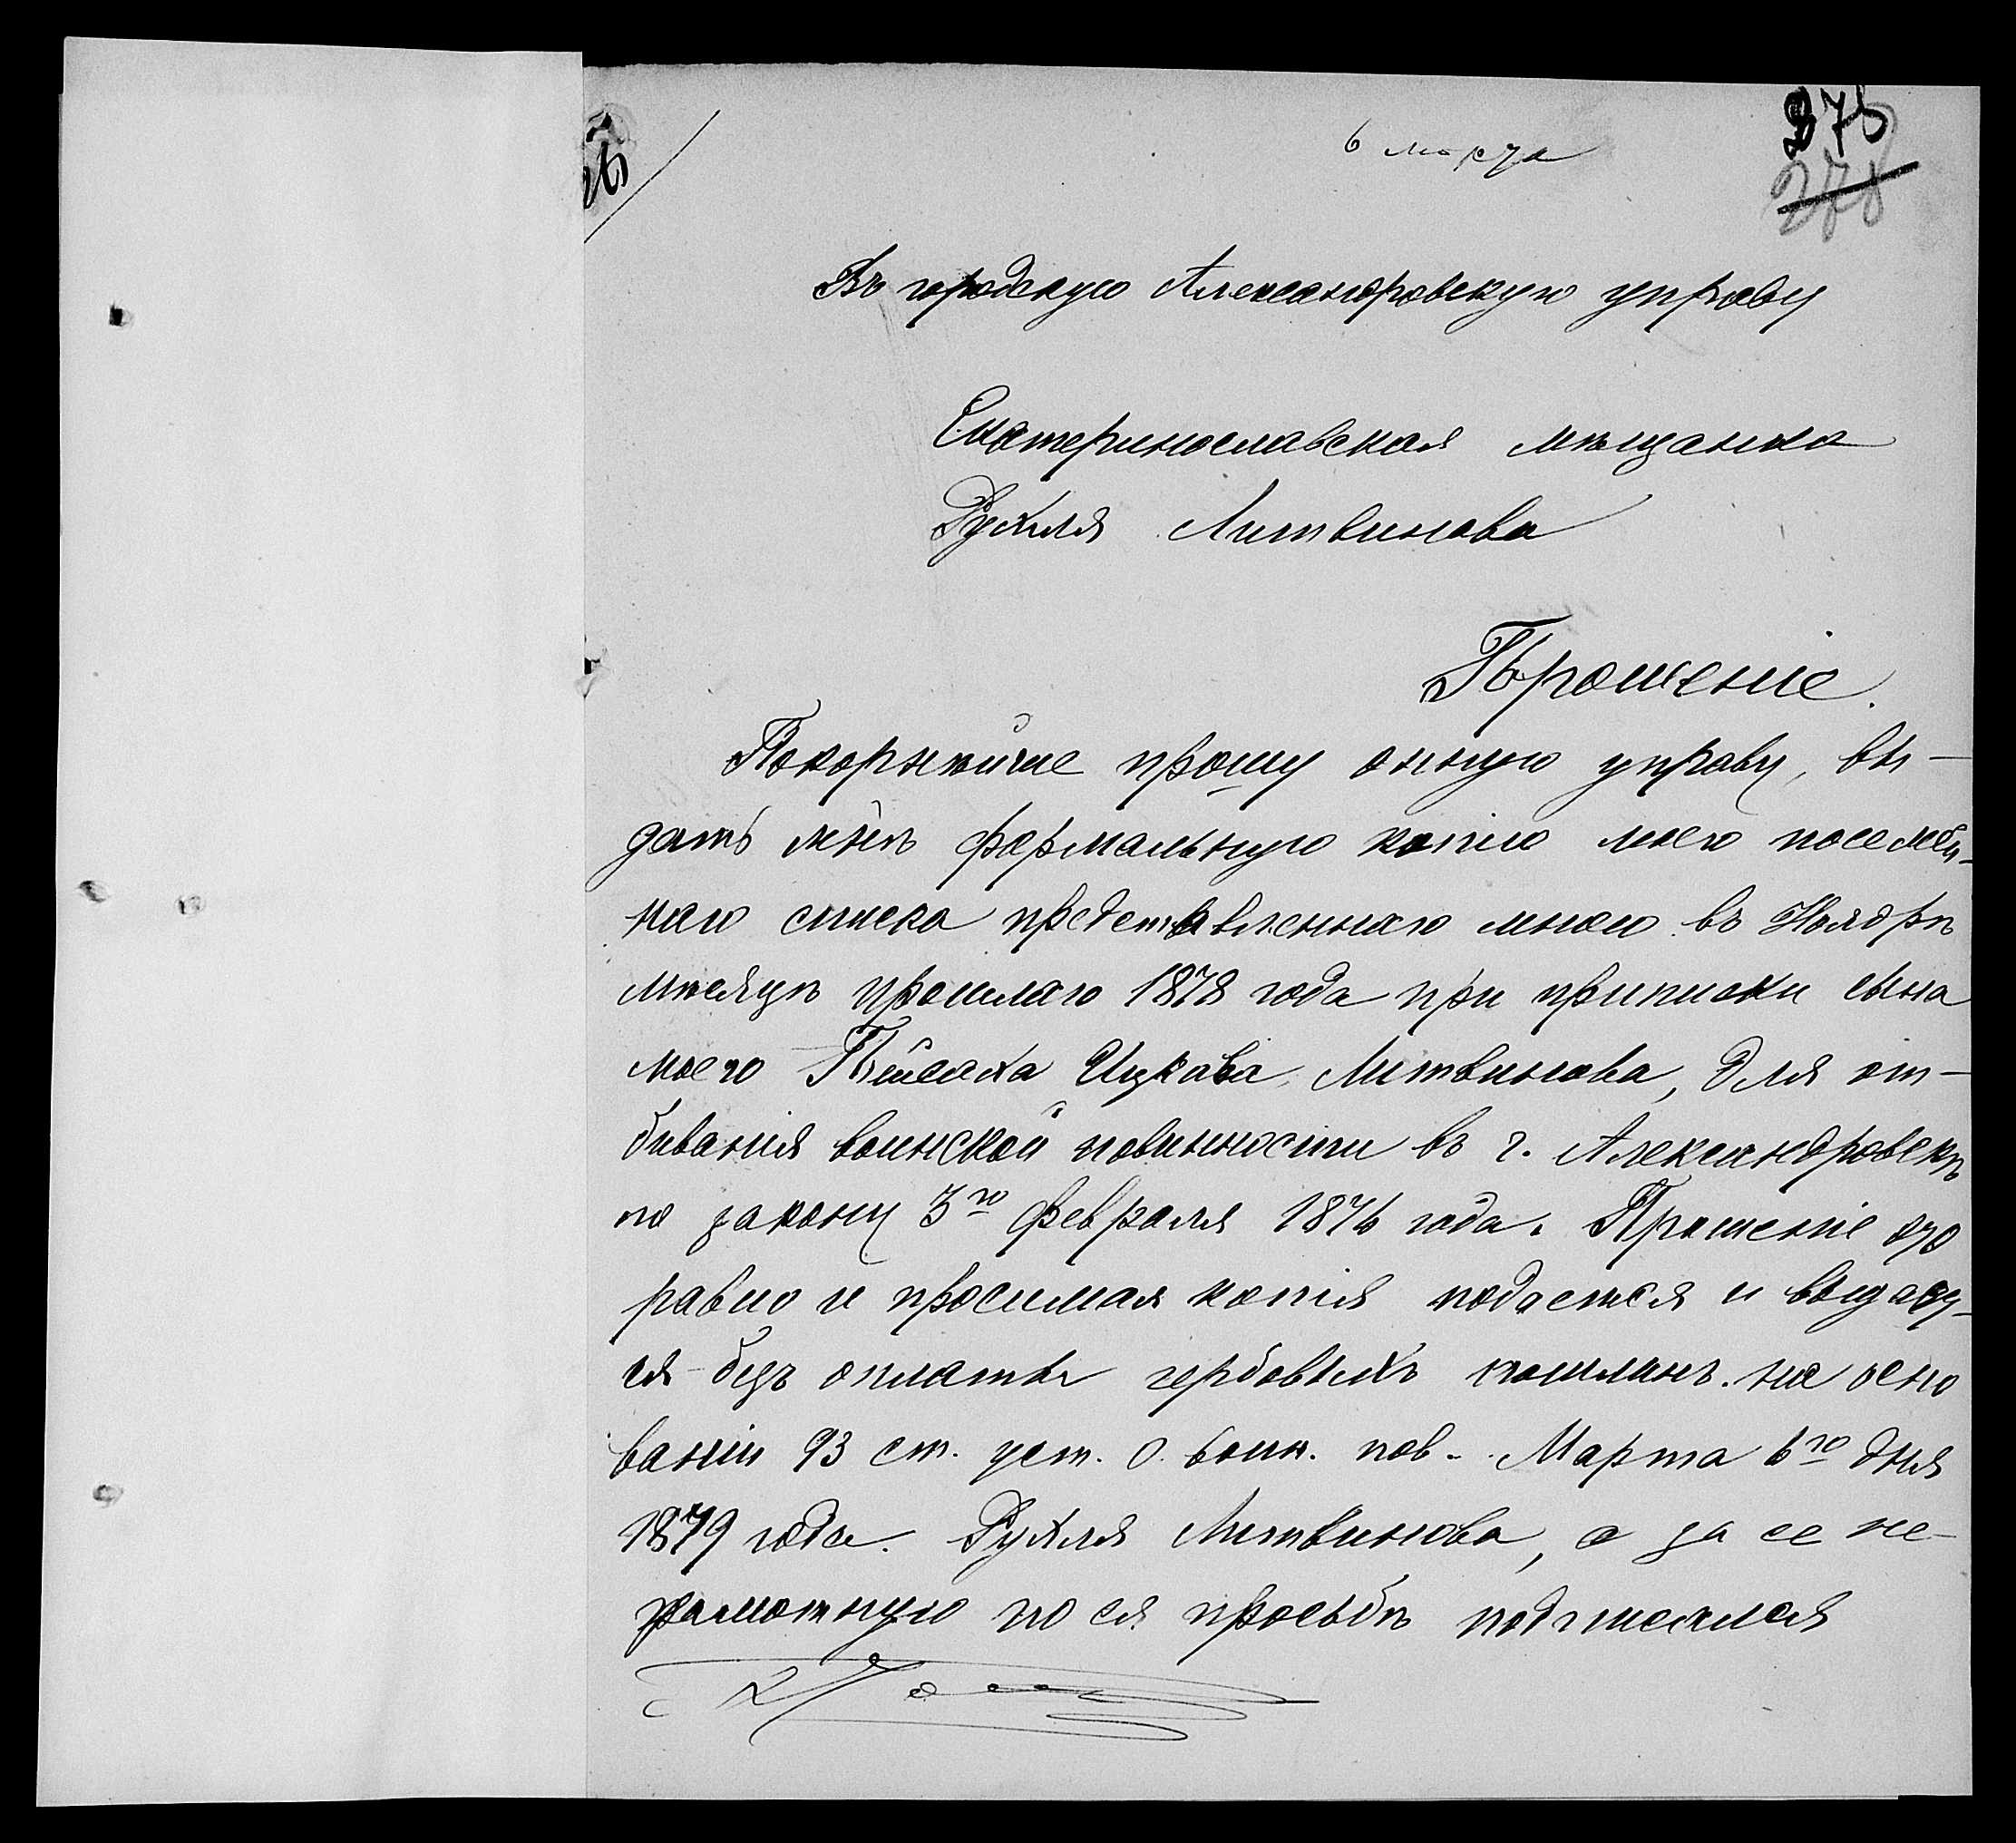 6 марта
375
278
Въ городскую Александровскую управу
Екатеринославская мѣщанка
Рухля Литвинова
Прошеніе.
Покорнѣйше прошу оную управу, вы-
дать мнѣ формальную копію моего посемей-
наго списка представленнаго мною въ Ноябрѣ
мѣсяцѣ прошлаго 1878 года при приписки сына
моего Пейсаха Ицкова Литвинова, для от-
быванія воинской повинности въ г. Александровскѣ
по закону 3го февраля 1876 года. Прошеніе это
равно и просимая копія подается и выдает-
ся безъ оплаты гербовыхъ пошлинъ на осно
ваніи 93 ст. уст. о воин. пов. Марта 6го дня
1879 года. Рухля Литвинова, а за ее не-
грамотную по ея просьбѣ подписался